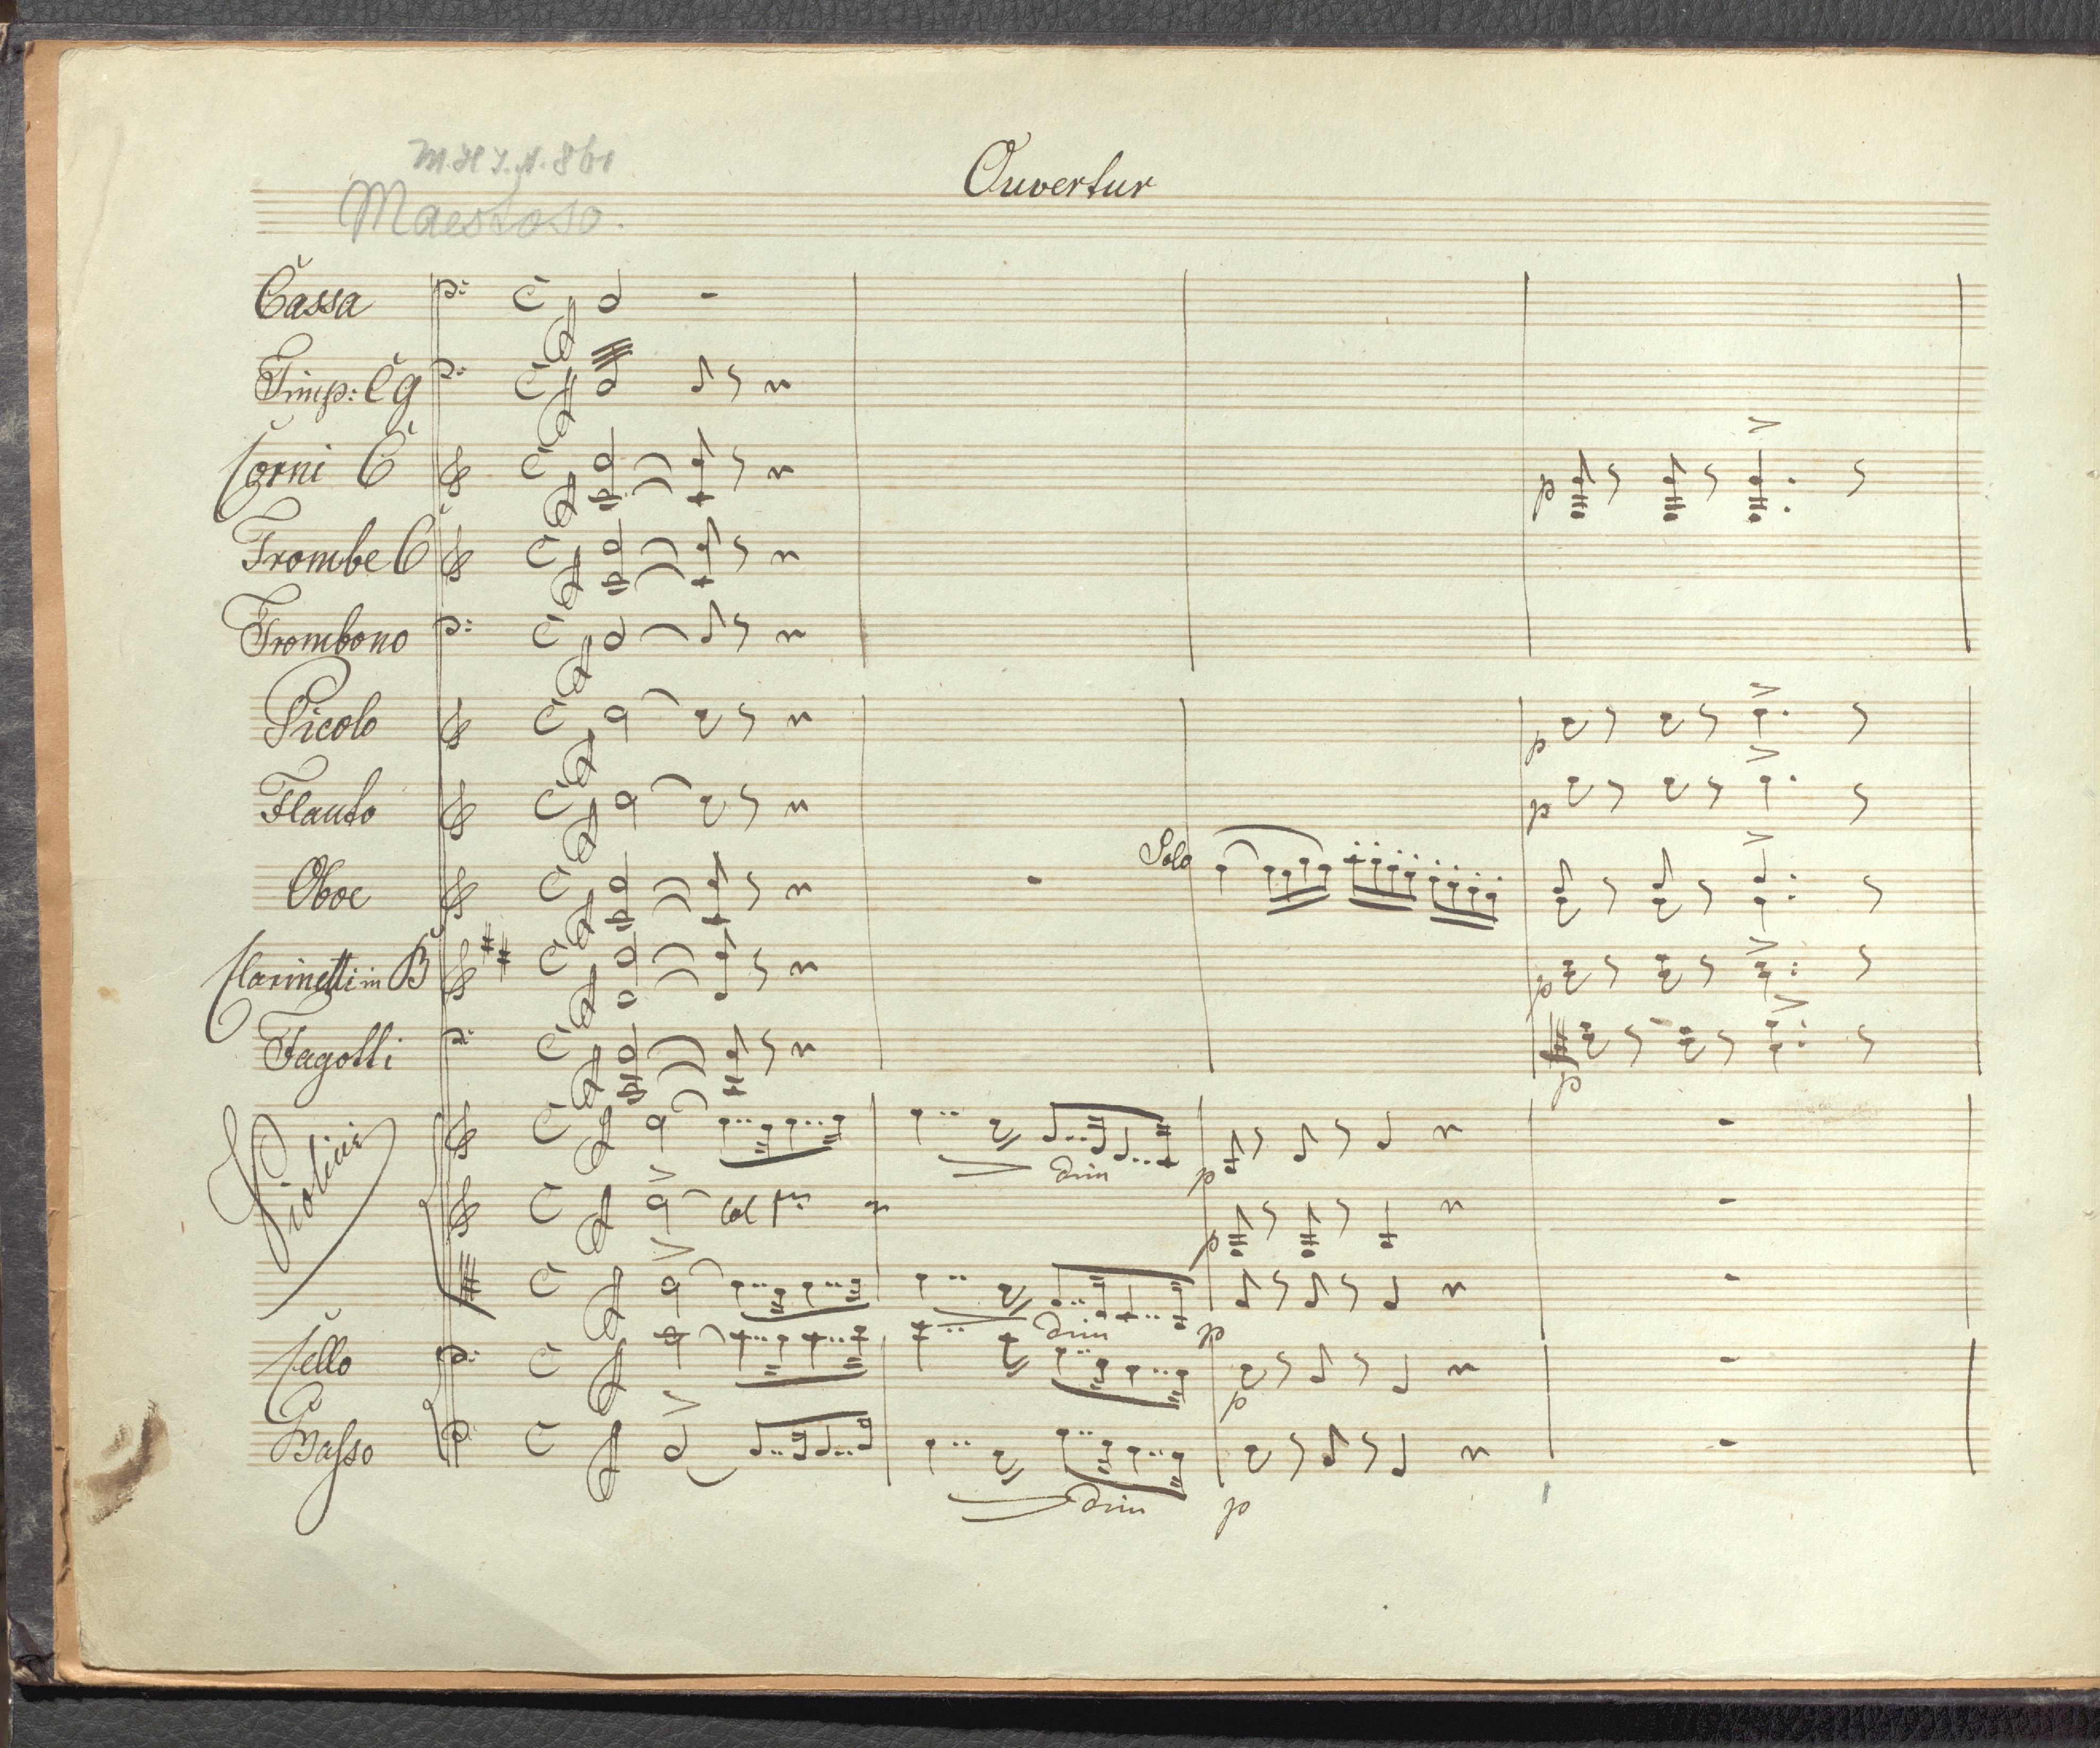 Ouvertur
Maestoso.
Cassa
Timp: C g
Corni C
p
Trombe C
Trombono
Picolo
p
Flauto
p
Oboe
Solo
Clarinetti in B
p
Fagotti
p
Violini
dim
p
Col 1mo
p
dim
p
Cello
p
Basso
dim
p